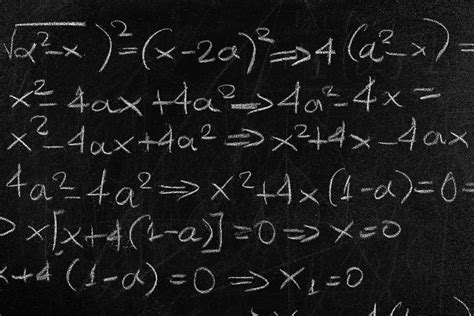 √a²-x )²=(x-2a)²⇒4(a²-x)=
x²-4ax+4a²⇒4a²-4x=
x²-4ax+4a²⇒x²+4x-4ax
4a²-4a²⇒x²+4x(1-a)=0=
x[x+4(1-a)]=0⇒x=0
x+4(1-a)=0⇒x₁=0